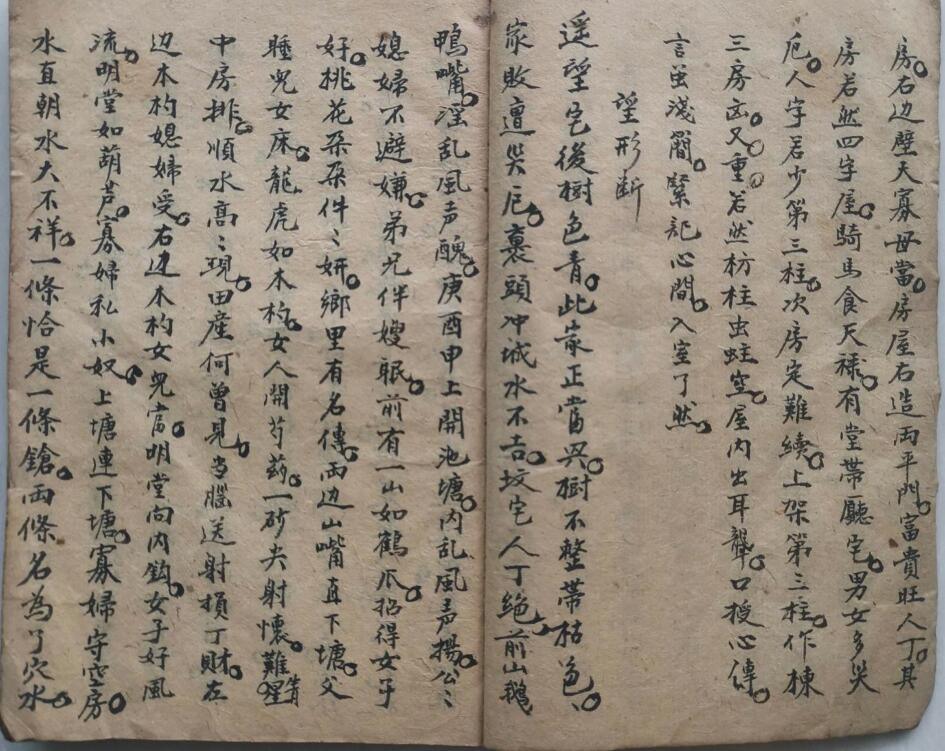 房。右边壁天寡母當。房屋右造两平門。富貴旺人丁。其
房若然四字屋。騎馬食天禄。有堂帶廳宅。男女多災
厄。人字若少第三柱。次房定難續。上架第三柱。作棟
三房凶。又重。若然枋柱虫蛀空。屋内出耳聾。口授心傳。
言虽淺簡。緊記心間。入室了然。
望形断
遥望宅後樹色青。此家正當兴。樹不整帶枯色、
家敗遭災厄。裹頭冲城水不吉。坟宅人丁绝。前山鵝
鴨嘴。淫乱風声醜。庚酉申上開池塘。内乱風声揚。公〻
媳婦不避嫌。弟兄伴嫂眠。前有一山如鶴爪。招得女子
好。桃花朶朶件〻妍。鄉里有名傳。两边山嘴直下塘。父
睡兒女床。龍虎如木杓。女人開芍药。一砂尖射懷。難
中房排。順水高〻現。田産何曾見。当腦送射損丁財。左
边木杓媳婦受。右边木杓女兒當。明堂向内鈎。女子好風
流。明堂如葫芦。寡婦私小奴。上塘連下塘。寡婦守空房。
水直朝水大不祥。一條恰是一條鎗。两條名為了穴水。